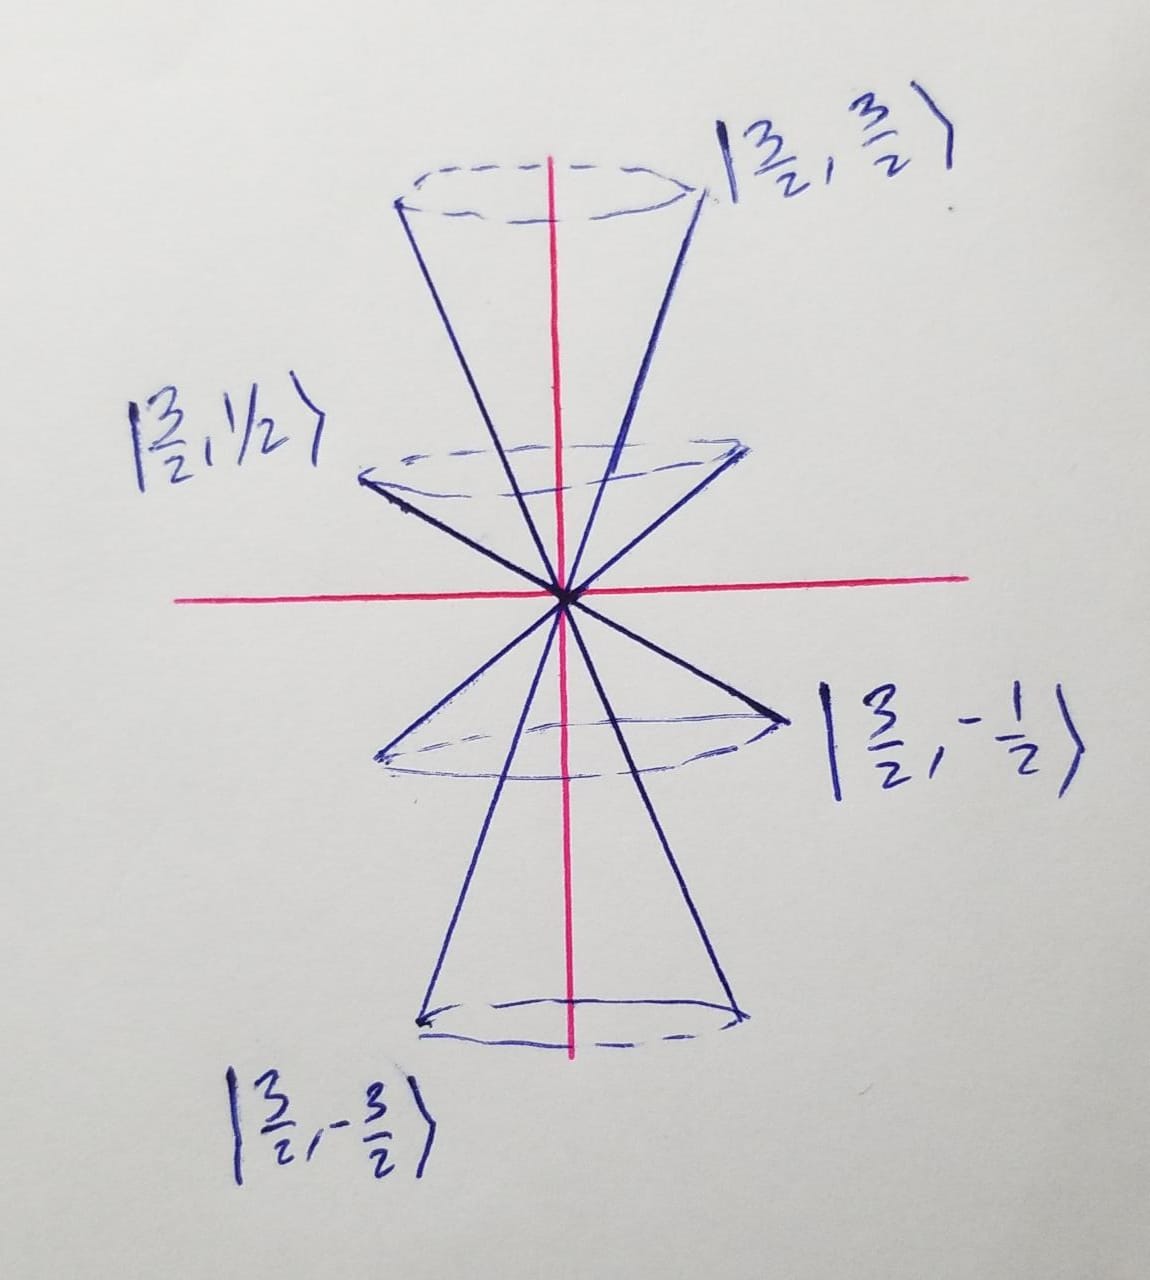 |3/2, 3/2⟩
|3/2, 1/2⟩
|3/2, -1/2⟩
|3/2, -3/2⟩